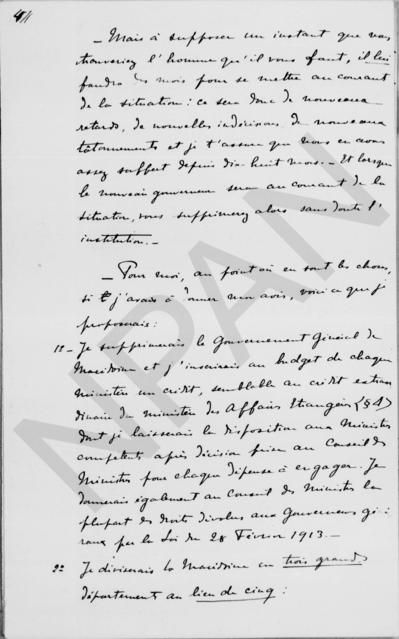 4
— Mais à supposer un instant que vous
trouveriez l'homme qu'il vous faut, il lui
faudra des mois pour se mettre au courant
de la situation : ce sera donc de nouveaux
retards, de nouvelles indécisions, de nouveaux
tâtonnements et je t'assure que nous en avons
assez souffert depuis dix-huit mois. — Et lorsque
le nouveau gouverneur sera au courant de la
situation, vous supprimerez alors sans doute l'
institution. —
— Pour moi, au point où en sont les choses,
si j'avais à donner mon avis, voici ce que je
proposerais :
1º — Je supprimerais le Gouvernement Général de
Macédoine et j'inscrirais au budget de chaque
ministère un crédit, semblable au crédit extraor
dinaire du ministère des Affaires Etrangères (§4)
dont je laisserais la disposition aux Ministres
compétents après décision prise au Conseil des
Ministres pour chaque dépense à engager. Je
donnerais également au Conseil des Ministres la
plupart des droits dévolus aux Gouverneurs géné
raux par la Loi du 28 Février 1913. —
2º Je diviserais la Macédoine en trois grands
départements au lieu de cinq :
NPAN